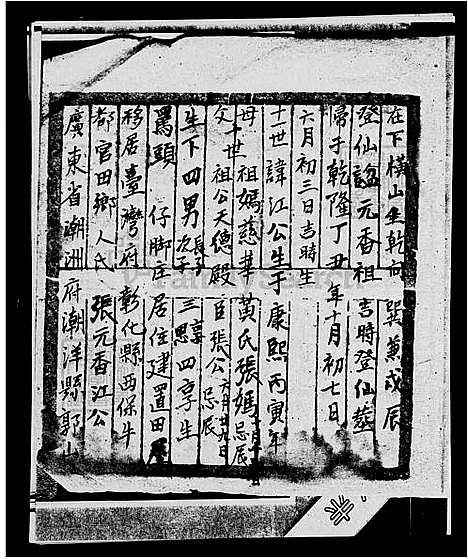 在下橫山坐乾向巽兼戌辰
登仙諡元香祖吉時登仙塟
歸于乾隆丁丑年十月初七日
六月初三日吉時生
十世諱江公生于康熙丙寅年
母十世祖媽慈華黃氏張媽忌辰
父十世祖公天德殿臣張公忌辰
生下四男長子 次子 三享 四享生
罵頭仔脚庄居住建置田
移居臺灣府彰化縣西保牛
都官田鄉人氏張元香江公
廣東省潮洲府潮洋縣郭山